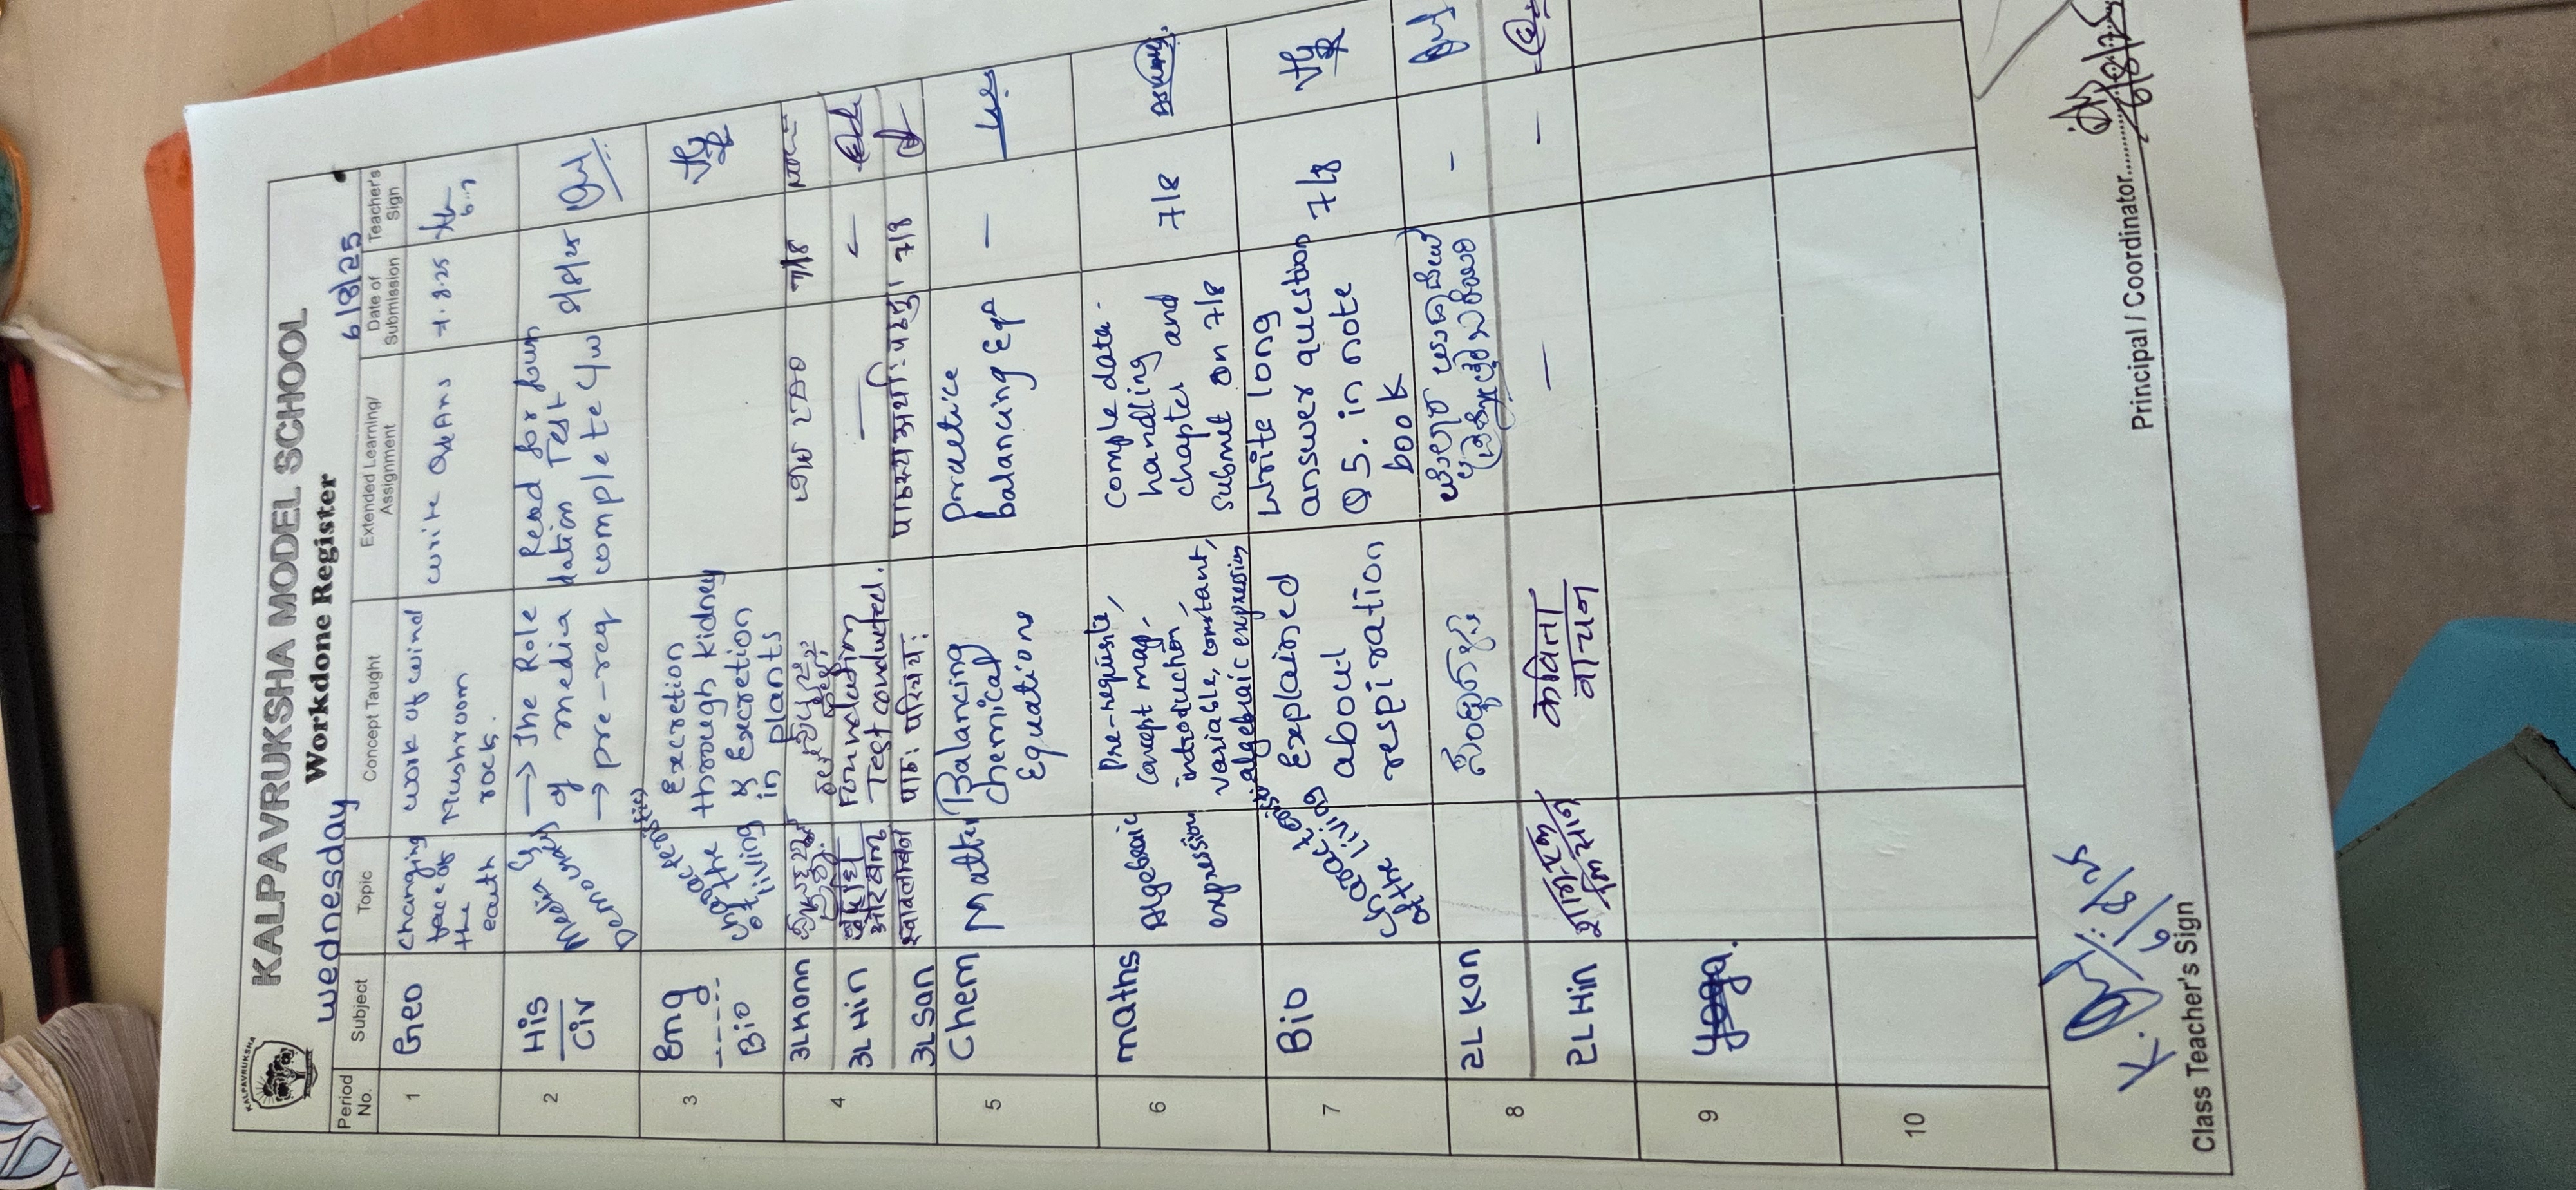 KALPAVRUKSHA
KALPAVRUKSHA MODEL SCHOOL
Workdone Register
Wednesday
6/8/25
Period No.
Subject
Topic
Concept Taught
Extended Learning/ Assignment
Date of Submission
Teacher's Sign
1
Geo
Changing face of the earth
work of wind
Mushroom rock.
write Q&Ans
7.8.25
2
His
Civ
Media & Democracy
→ The Role of media
→ pre-req
Read for foundation Test
complete CW
8/8/25
3
Eng
Bio
Excretion through kidney & Excretion in plants
4
3L Kann
7/8
3L Hin
Foundation Test conducted.
—
3L San
पाठः परिचयः
7/8
5
Chem
Matter
Balancing Chemical Equations
Practice balancing Eqn
—
6
maths
Algebraic expression
Pre-requisite, concept map, introduction, variable, constant, algebraic expression
Comple data-handling chapter and submit on 7/8
7/8
7
Bio
of the living
Explained about respiration
Write long answer question Q5. in note book
7/8
8
2L Kan
-
2L Hin
कविता वाचन
—
-
9
Yoga.
10
K.
6/8/25
Class Teacher's Sign
Principal / Coordinator
6/8/25